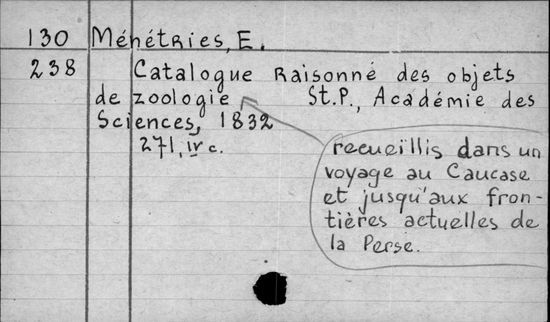 130 Ménétries, E.
238 Catalogue raisonné des objets
de zoologie St.P., Académie des
Sciences, 1832
271, IV c.
recueillis dans un
voyage au Caucase
et jusqu'aux fron-
tières actuelles de
la Perse.